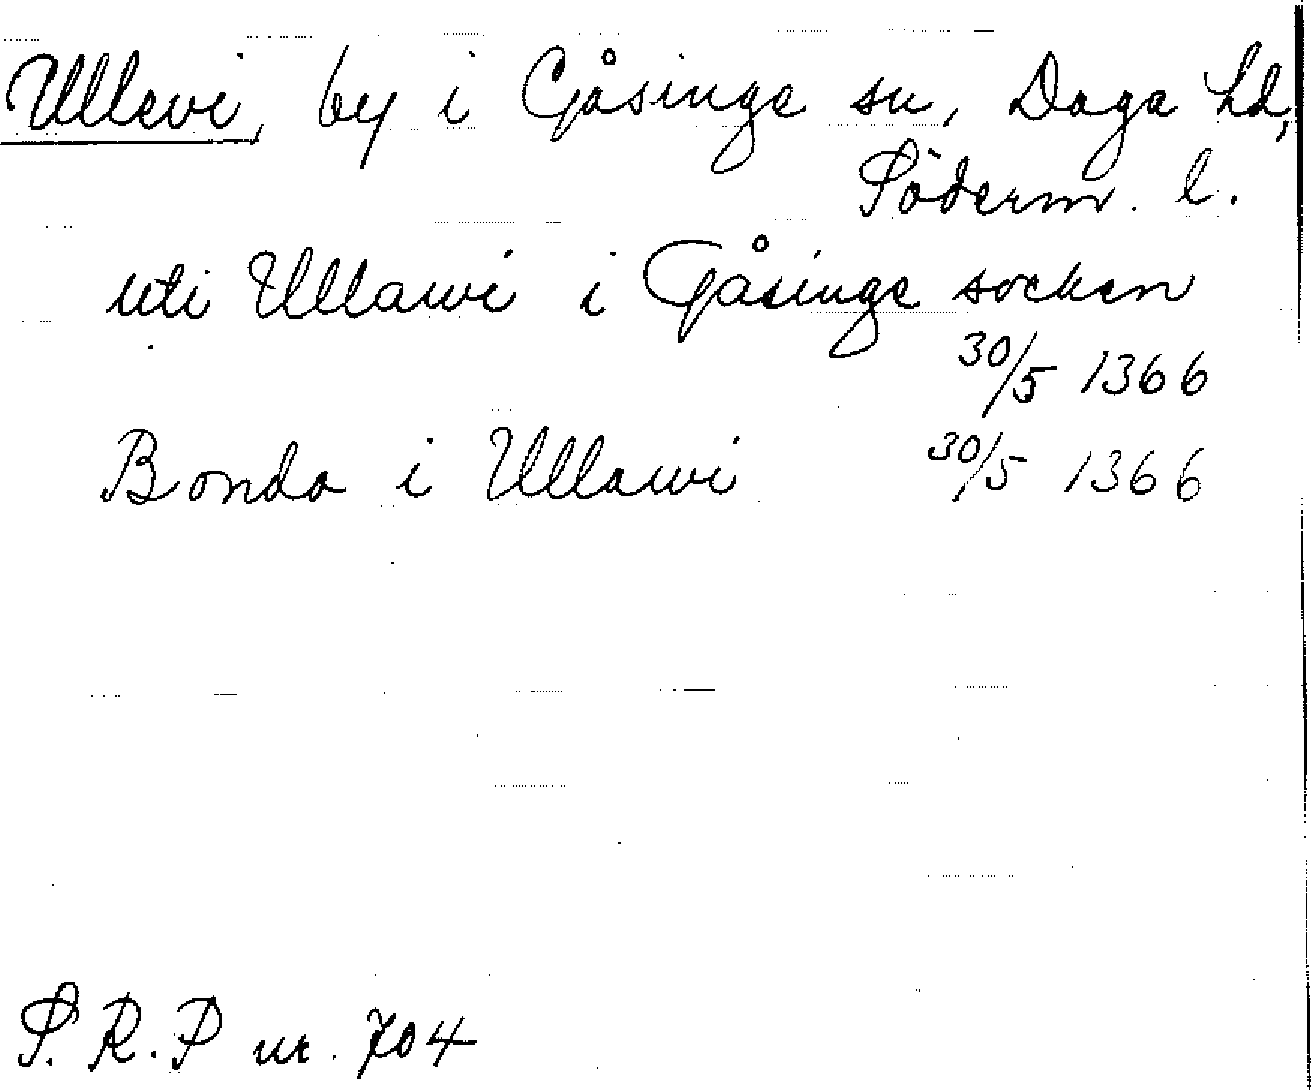 Ullevi, by i Gåsinge sn, Daga hd,
Söderm. l.
uti Ullawi i Gåsinge socken
30/5 1366
Bonda i Ullawi 30/5 1366
S. R. P nr. 704